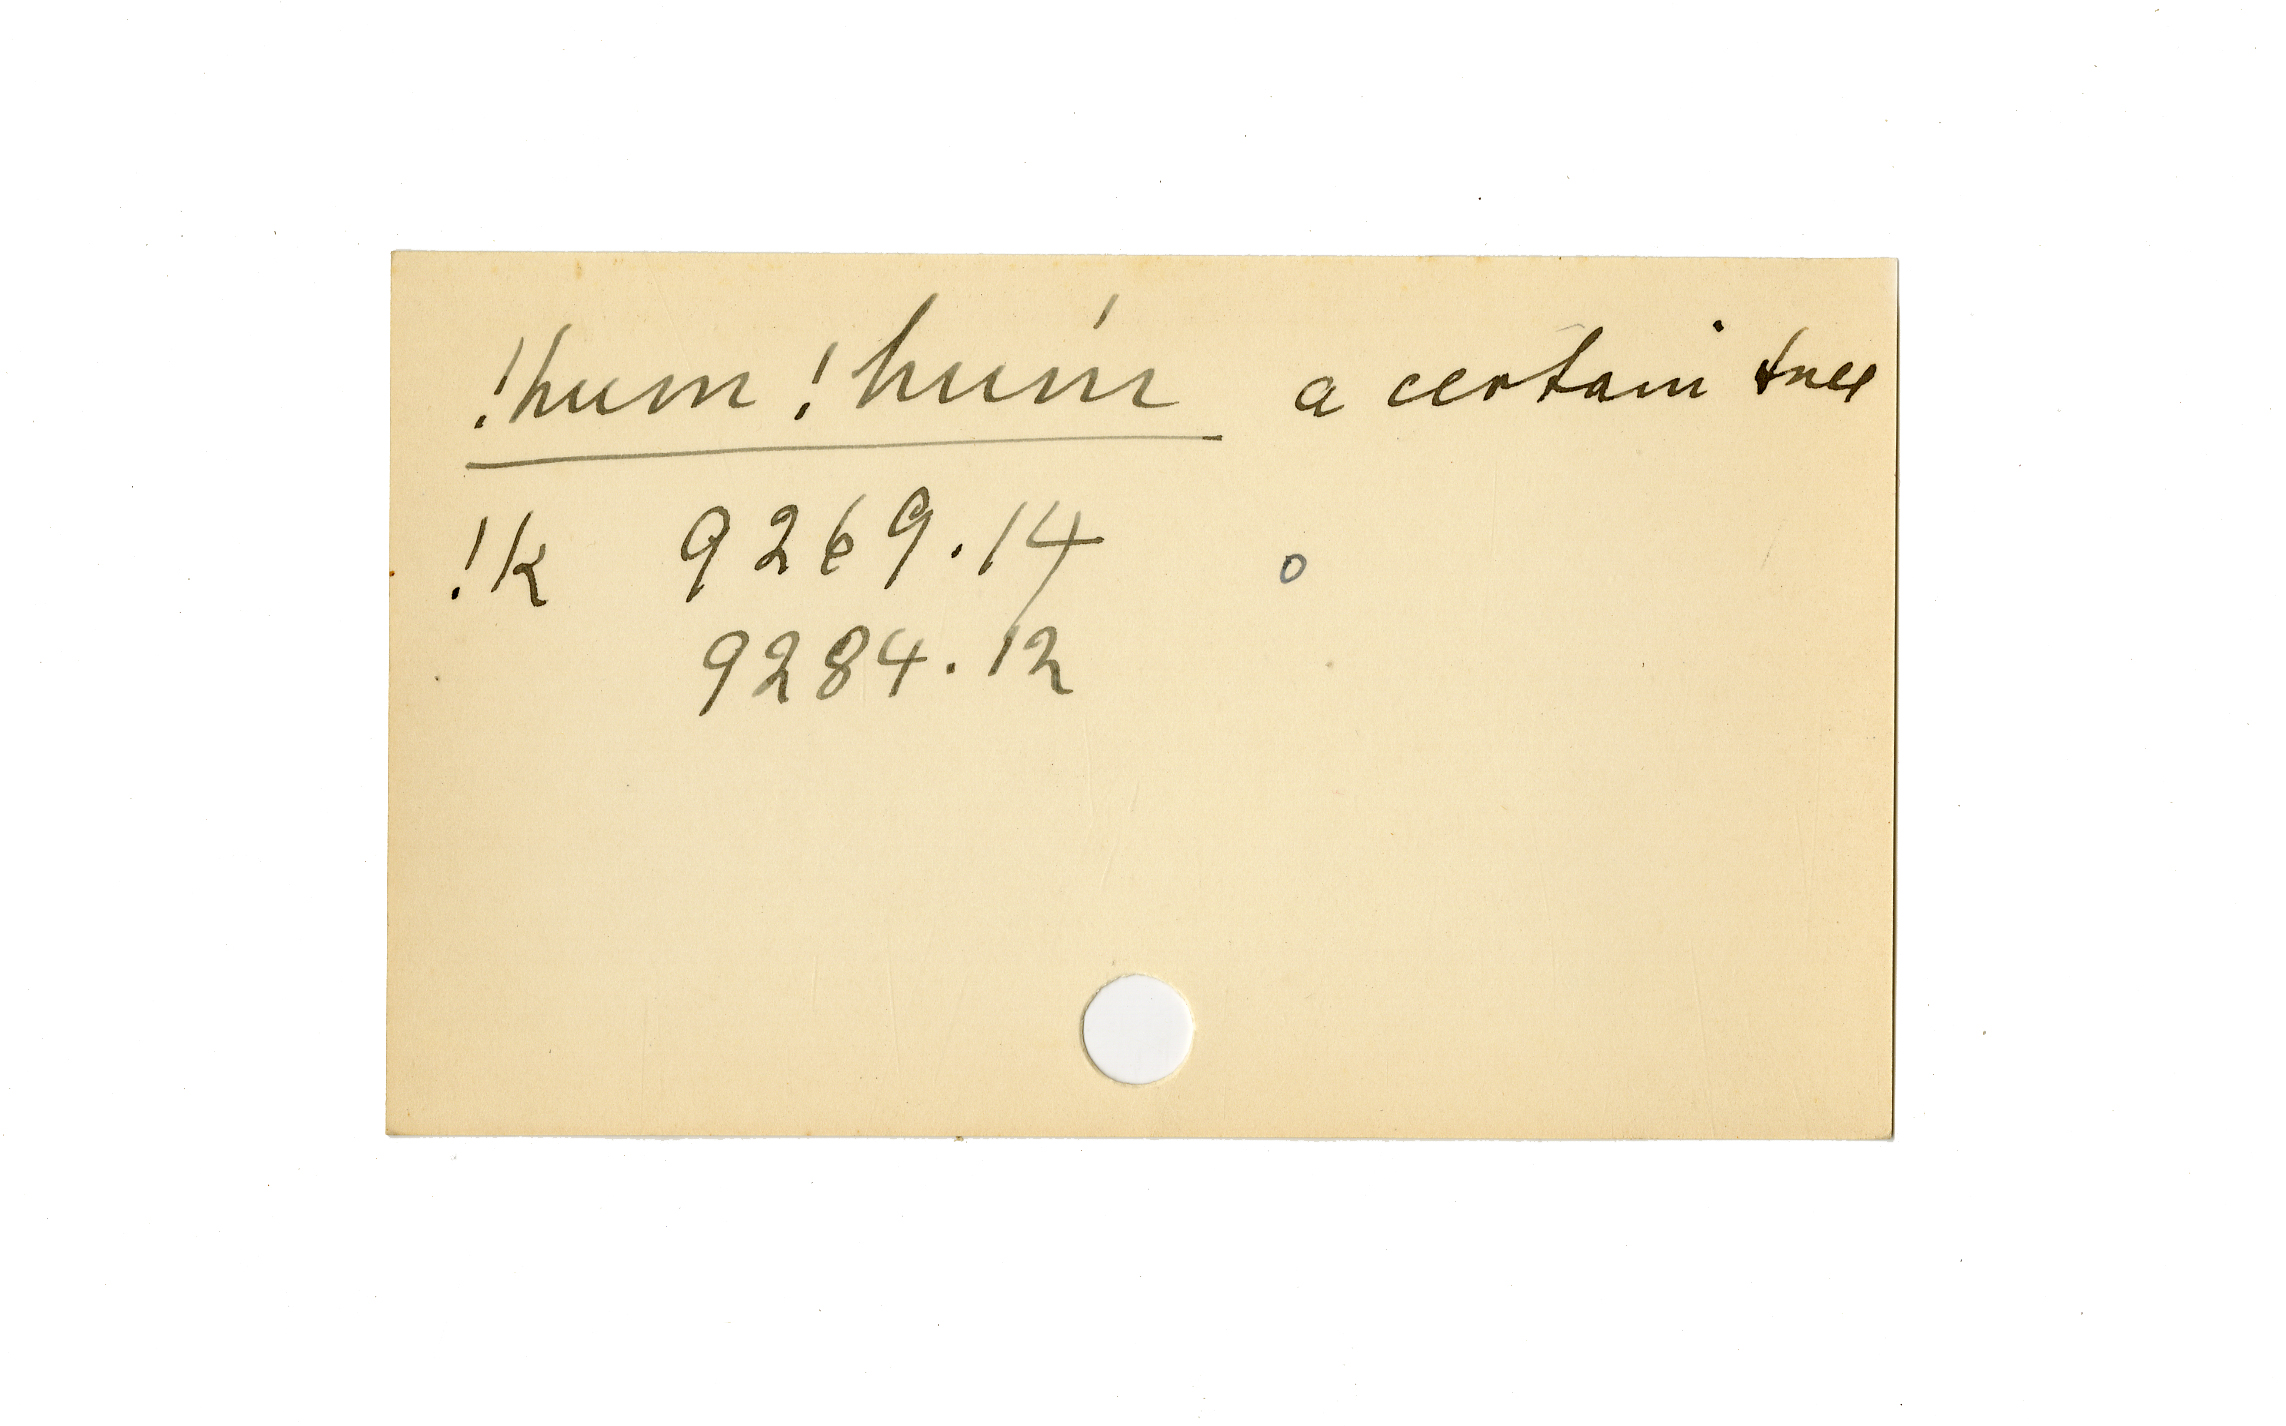 !hum !huḿ a certain tree
!k 9269.14 o
9284.12